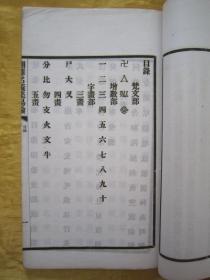 目錄
梵文部
卍
增數部
一二三四五六七八九十
字畫部
三畫
尸大叉
四畫
分比勿支火文牛
五畫